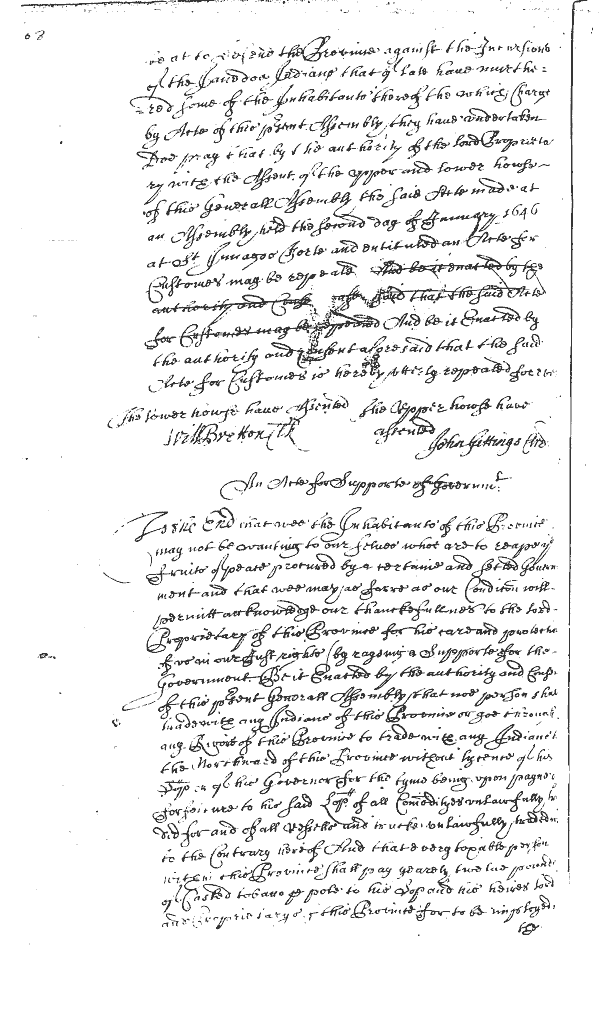 68
at to defend the Province against the Incursions
of the Indians that of late have murthe=
=red some of the Inhabitants thereof the which Charge
by Acte of this psent Assembly they have undertaken
Doe pray that by the authority of the lord Proprieta
ry with the Assent of the upper and lower howse
of this Generall Assembly the said Acte made at
an Assembly held the second day of January 1646
at St Innagoes Forte and entituled an Acte for
Customes may be repeald And be it enacted by the
authority and that the said Acte
for Customes may be repealed And be it Enacted by
the authority and consent aforesaid that the said
Acte for Customes is hereby utterly repealed for
The lower howse have Assented The Upper howse have
Will Bretton Clk assented John Gittings Clre
An Acte for Supporte of Governmt.
To the End that wee the Inhabitants of this Province
may not be wanting to our selves who are to reape ye
fruits of peace procured by a certaine and setled Govern
ment and that wee may as farre as our Condition will
permitt acknowledge our thanckefullnes to the lord
Proprietary of this Province for his care and protectn
of us in our Just rights (by raysing a Supporte for the
Government. Be it Enacted by the authority and Cons
of this psent Generall Assembly that noe person shall
trade with any Indians of this Province or goe through
any Rivers of this Province to trade with any Indians to
the Northward of this Province without lycence of his
Lopp or of his Governor for the tyme being upon payne
forfeiture to his said Lopp of all Comodityes unlawfully tra
ded for and of all Vessells and trucke unlawfully traded
to the Contrary hereof And that every taxable person
within this Province shall pay yearely twelve pounds
of Casked tobacco p pole to his Lopp and his heires lord
and Proprietarys of this Province for to be imployed
the